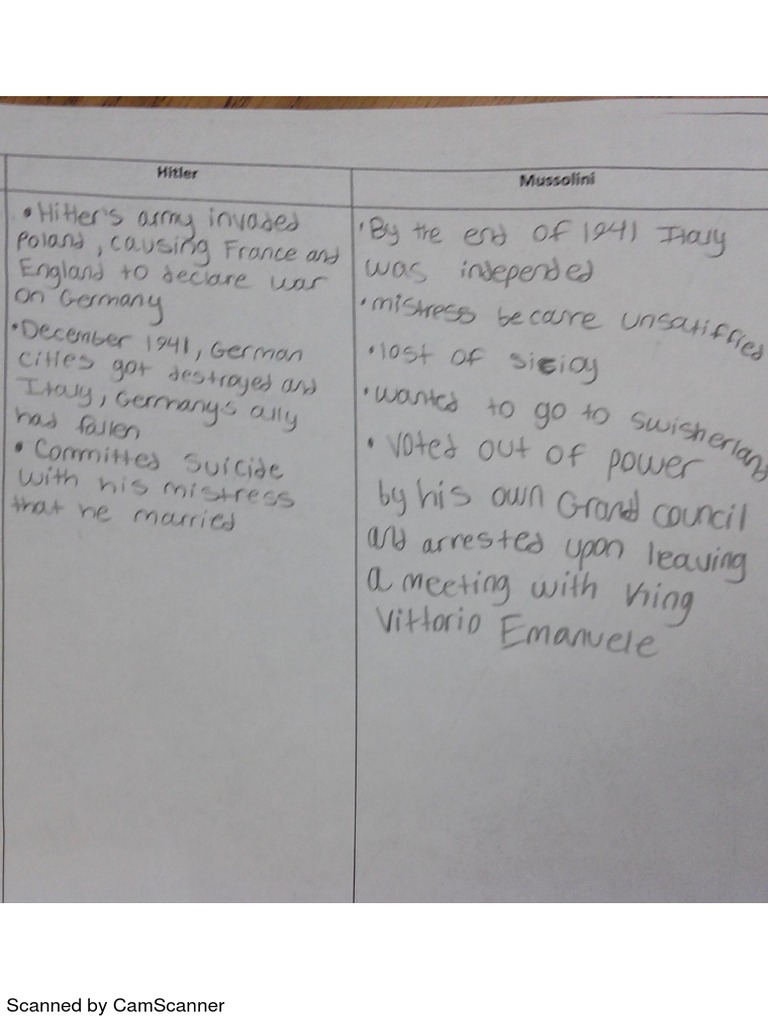 Hitler
• Hitler's army invaded
Poland, causing France and
England to declare war
on Germany
• December 1941, German
cities got destroyed and
Italy, Germanys ally
had fallen
• Committed suicide
with his mistress
that he married
Mussolini
• By the end of 1941 Italy
was independed
• mistress became unsatiffied
• lost of sicioy
• wanted to go to swisherland
• voted out of power
by his own Grand council
and arrested upon leaving
a meeting with King
Vittorio Emanuele
Scanned by CamScanner